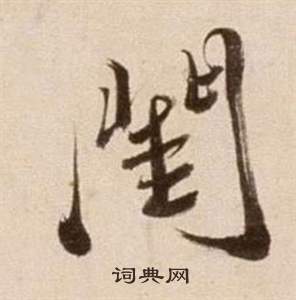 闺
词典网